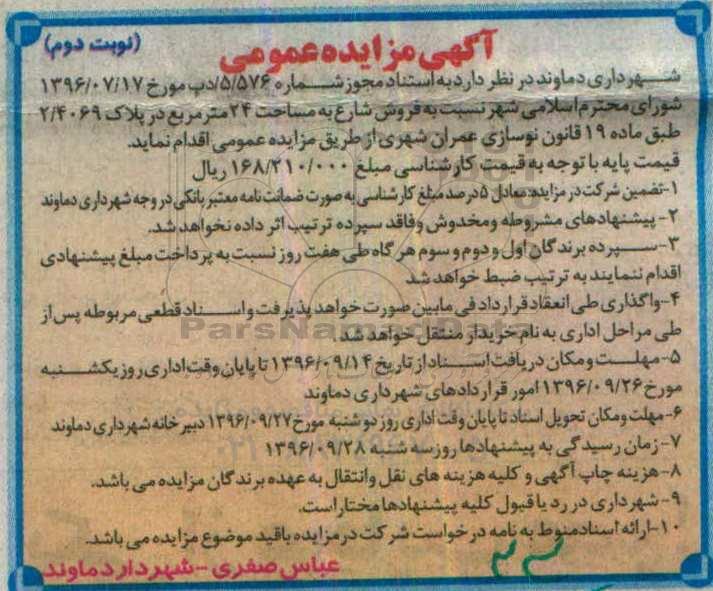 آگهی مزایده عمومی
(نوبت دوم)
شهرداری دماوند در نظر دارد به استناد مجوز شماره ۵/۵۷۶/دب مورخ ۱۳۹۶/۰۷/۱۷
شورای محترم اسلامی شهر نسبت به فروش شارع به مساحت ۲۴ مترمربع در پلاک ۲/۴۰۶۹
طبق ماده ۱۹ قانون نوسازی عمران شهری از طریق مزایده عمومی اقدام نماید.
قیمت پایه با توجه به قیمت کارشناسی مبلغ ۱۶۸/۲۱۰/۰۰۰ ریال
۱-تضمین شرکت در مزایده: معادل ۵ درصد مبلغ کارشناسی به صورت ضمانت نامه معتبر بانکی در وجه شهرداری دماوند
۲- پیشنهادهای مشروطه و مخدوش و فاقد سپرده ترتیب اثر داده نخواهد شد.
۳-سپرده برندگان اول و دوم و سوم هرگاه طی هفت روز نسبت به پرداخت مبلغ پیشنهادی
اقدام ننمایند به ترتیب ضبط خواهد شد
۴-واگذاری طی انعقاد قرارداد فی مابین صورت خواهد پذیرفت و اسناد قطعی مربوطه پس از
طی مراحل اداری به نام خریدار منتقل خواهد شد.
ParsNamadData
۵-مهلت و مکان دریافت اسناد از تاریخ ۱۳۹۶/۰۹/۱۴ تا پایان وقت اداری روز یکشنبه
مورخ ۱۳۹۶/۰۹/۲۶ امور قراردادهای شهرداری دماوند
۶-مهلت و مکان تحویل اسناد تا پایان وقت اداری روز دوشنبه مورخ ۱۳۹۶/۰۹/۲۷ دبیرخانه شهرداری دماوند
۷-زمان رسیدگی به پیشنهادها روز سه شنبه ۱۳۹۶/۰۹/۲۸
۸-هزینه چاپ آگهی و کلیه هزینه های نقل وانتقال به عهده برندگان مزایده می باشد.
۹-شهرداری در رد یا قبول کلیه پیشنهادها مختار است.
۱۰-ارائه اسناد منوط به نامه درخواست شرکت در مزایده باقید موضوع مزایده می باشد.
عباس صفری -شهردار دماوند